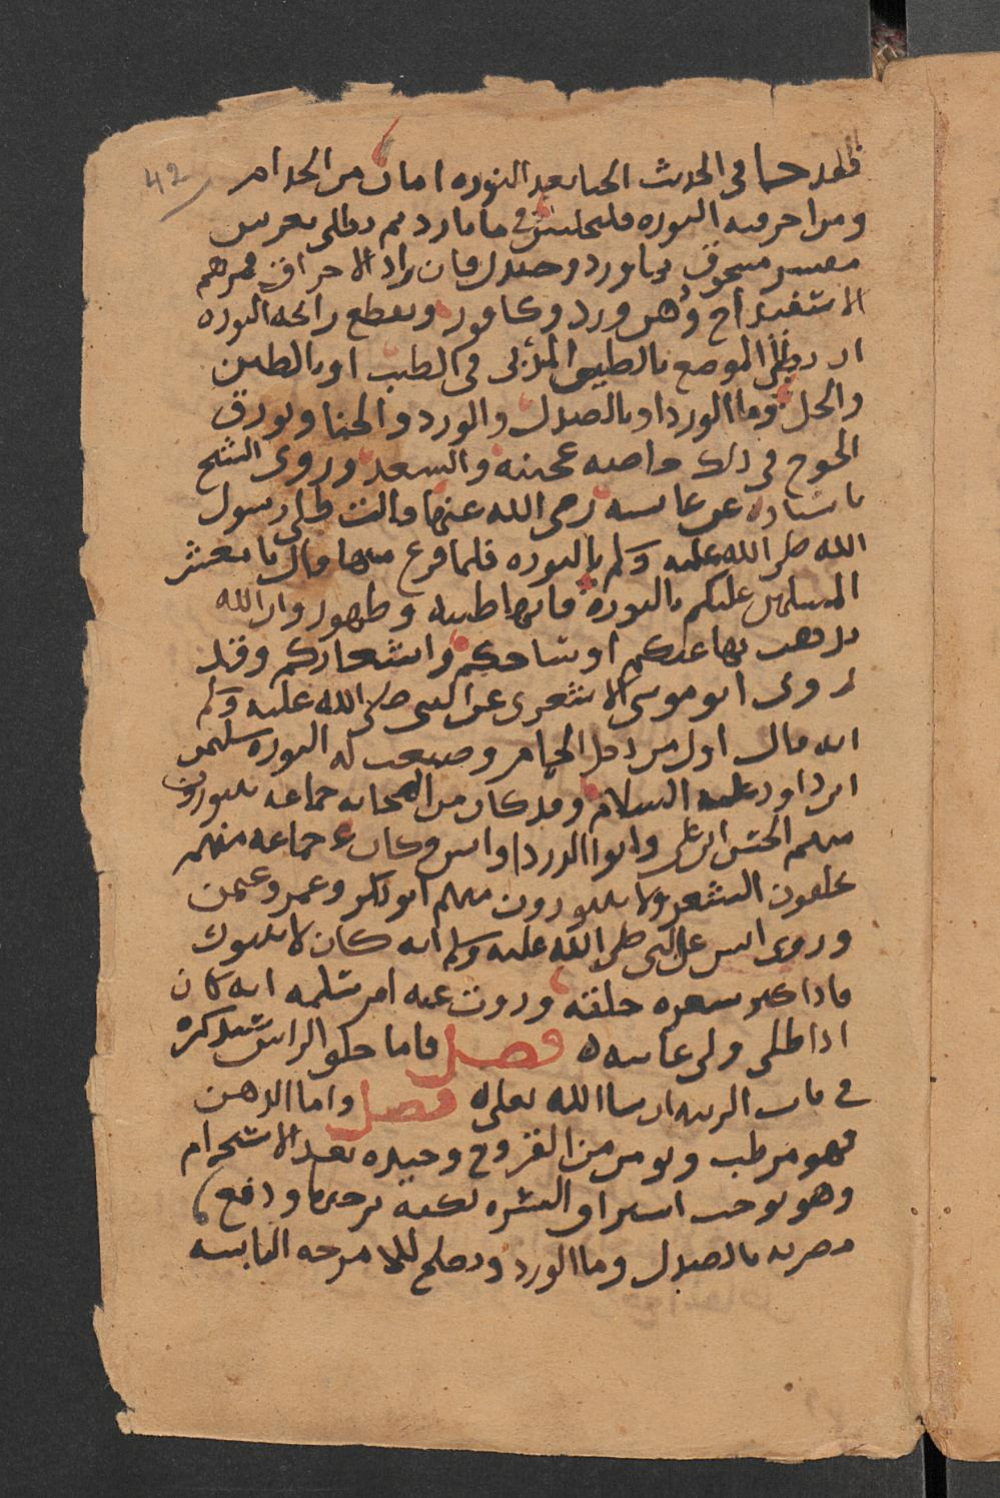 42
فقد جا في الحديث الحنا بعد النوره امان من الجدام
ومن احرقته النوره فليجلس في ما بارد ثم يطلى بعدس
مقشر مسحوق بماورد وصندل فان زاد الاحراق فمرهم
الاسفيداج ودهن ورد وكافور ويقطع رائحه النوره
ان يطلى الموضع بالطين المربى في الطيب او بالطين
والخل وما الورد او بالصندل والورد والحنا وورق
الخوخ في ذلك خاصيه عجيبه والسعد وروى الشيخ
باسناده عن عايشه رضي الله عنها قالت طلى رسول
الله صلى الله عليه وسلم بالنوره فلما فرغ منها قال يا معشر
المسلمين عليكم بالنوره فانها طيبه وطهور وان الله
يذهب بها عنكم اوساخكم واشعاركم وقد
روى ابو موسى الاشعري عن النبي صلى الله عليه وسلم
انه قال اول من دخل الحمام وصنعت له النوره سليمن
ابن داود عليه السلام وقد كان من الصحابه جماعه يتنورون
منهم الحسن ابن علي وابوا الدردا وانس وكان جماعه منهم
يحلقون الشعر ولا يتنورون منهم ابو بكر وعمر وعثمن
وروى انس عن النبي صلى الله عليه وسلم انه كان لا يتنور
فاذا كثر شعره حلقه وروت عنه ام سلمه انه كان
اذا اطلى ولي عانته فصل فاما حلق الراس سنذكره
في باب الزينه ان شا الله تعلى فصل واما الدهن
فهو مرطب ويومن من القروح وجيده بعد الاستحمام
وهو يوجب البشره لكنه يرخيها ودفع
مضرته بالصندل وما الورد ويصلح للامزجه اليابسه